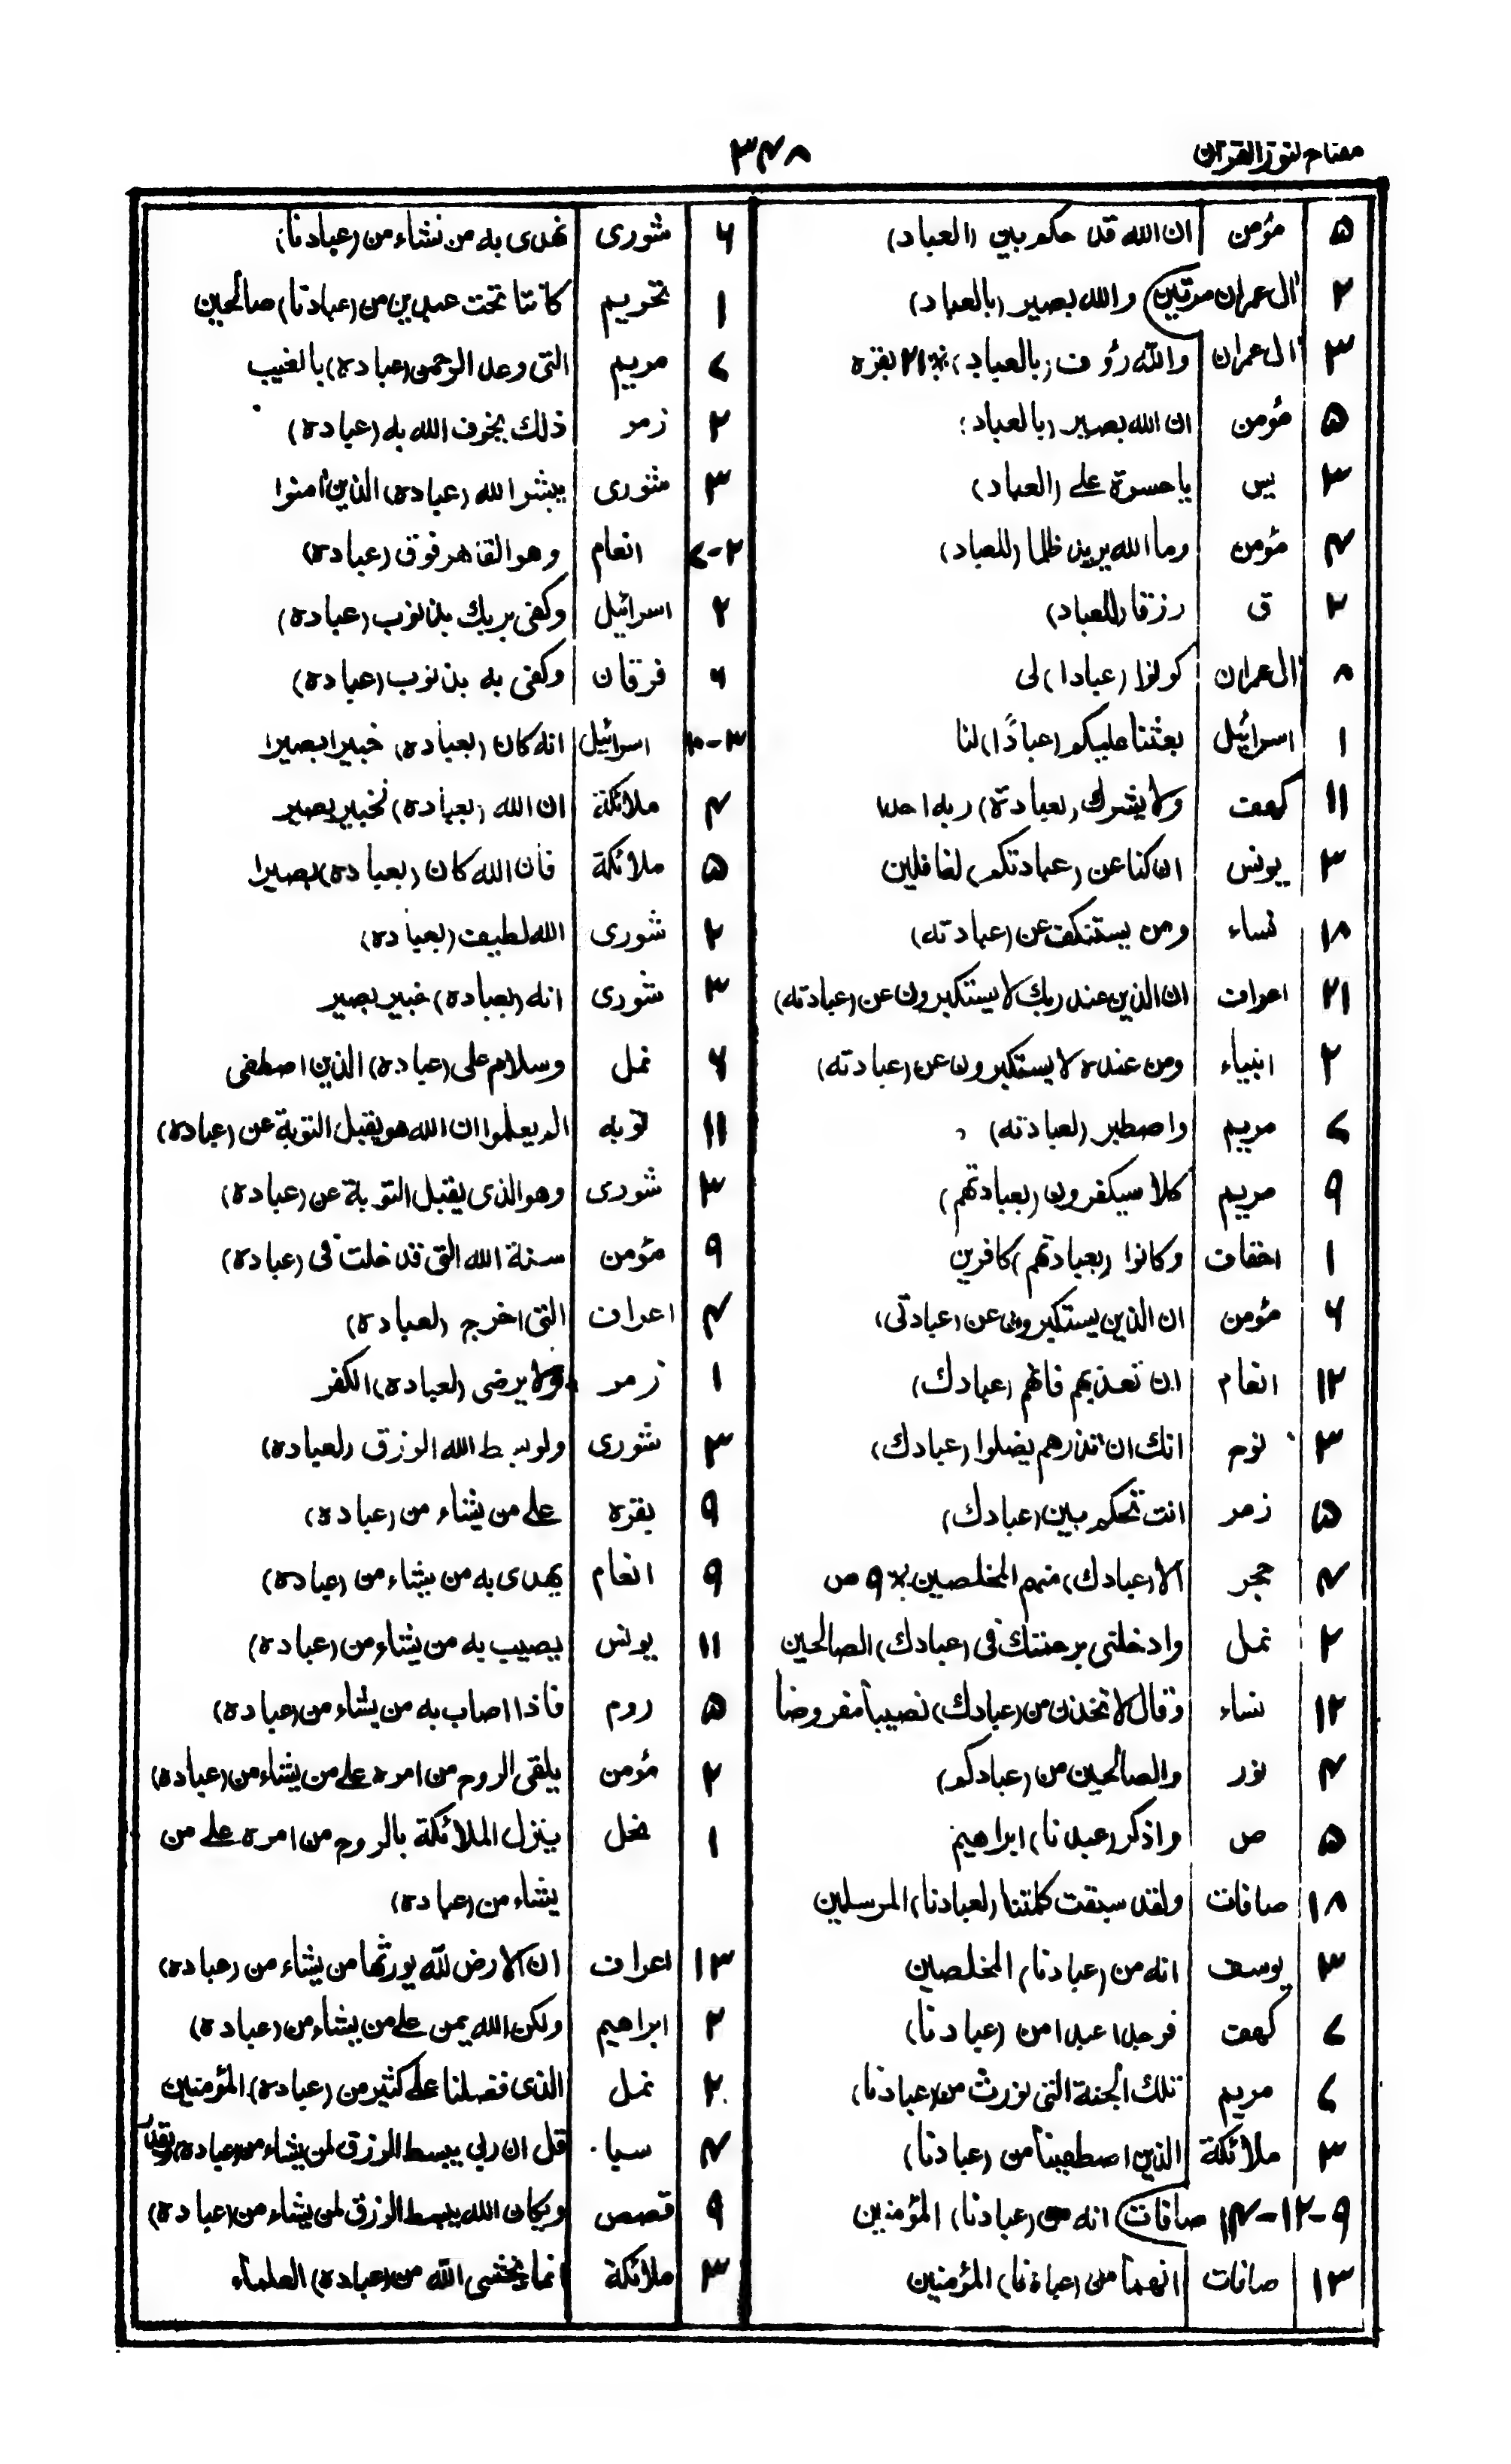 مفتاح كنوز القرآن
۳۴۸
۵ مؤمن ان الله قد حكم بين (العباد)
۲ آل عمران مرتين والله بصير (بالعباد)
۳ آل عمران والله رؤف (بالعباد) ۲۱ بقره
۵ مؤمن ان الله بصير (بالعباد)
۳ يس ياحسرة على (العباد)
۴ مؤمن وما الله يريد ظلما (للعباد)
۲ ق رزقا (للعباد)
۸ آل عمران كونوا (عبادا) لى
۱ اسرائيل بعثنا عليكم (عبادًا) لنا
۱۱ كهف ولا يشرك (بعبادة) ربه احدا
۳ يونس ان كنا عن (عبادتكم) لغافلين
۱۸ نساء ومن يستنكف عن (عبادته)
۲۱ اعراف ان الذين عند ربك لا يستكبرون عن (عبادته)
۲ انبياء ومن عنده لا يستكبرون عن (عبادته)
۷ مريم واصطبر (لعبادته)
۹ مريم كلا سيكفرون (بعبادتهم)
۱ احقاف وكانوا (بعبادتهم) كافرين
۶ مؤمن ان الذين يستكبرون عن (عبادتى)
۱۲ انعام ان تعذبهم فانهم (عبادك)
۳ نوح انك ان تذرهم يضلوا (عبادك)
۵ زمر انت تحكم بين (عبادك)
۴ حجر الا (عبادك) منهم المخلصين ۹ ص
۲ نمل وادخلنى برحمتك فى (عبادك) الصالحين
۱۲ نساء وقال لاتخذن من (عبادك) نصيبا مفروضا
۴ نور والصالحين من (عبادكم)
۵ ص واذكر (عبدنا) ابراهيم
۱۸ صافات ولقد سبقت كلمتنا (لعبادنا) المرسلين
۳ يوسف انه من (عبادنا) المخلصين
۷ كهف فوجدا عبدا من (عبادنا)
۷ مريم تلك الجنة التى نورث من (عبادنا)
۳ ملائكة الذين اصطفينا من (عبادنا)
۹-۱۲-۱۴ صافات انه من (عبادنا) المؤمنين
۱۳ صافات انهما من (عبادنا) المؤمنين
۶ شورى نهدى به من نشاء من (عبادنا)
۱ تحريم كانتا تحت عبدين من (عبادنا) صالحين
۷ مريم التى وعد الرحمن (عباده) بالغيب
۲ زمر ذلك يخوف الله به (عباده)
۳ شورى يبشر الله (عباده) الذين آمنوا
۲-۷ انعام وهو القاهر فوق (عباده)
۲ اسرائيل وكفى بربك بذنوب (عباده)
۶ فرقان وكفى به بذنوب (عباده)
اسرائيل انه كان (بعباده) خبيرا بصيرا
۴ ملائكة ان الله (بعباده) لخبير بصير
۵ ملائكة فان الله كان (بعباده) بصيرا
۲ شورى الله لطيف (بعباده)
۳ شورى انه (بعباده) خبير بصير
۶ نمل وسلام على (عباده) الذين اصطفى
۱۱ توبه الم يعلموا ان الله هو يقبل التوبة عن (عباده)
۳ شورى وهو الذى يقبل التوبة عن (عباده)
۹ مؤمن سنة الله التى قد خلت فى (عباده)
۴ اعراف التى اخرج (لعباده)
۱ زمر ولا يرضى (لعباده) الكفر
۳ شورى ولو بسط الله الرزق (لعباده)
۹ بقره على من يشاء من (عباده)
۹ انعام يهدى به من يشاء من (عباده)
۱۱ يونس يصيب به من يشاء من (عباده)
۵ روم فاذا اصاب به من يشاء من (عباده)
۲ مؤمن يلقى الروح من امره على من يشاء من (عباده)
۱ نحل ينزل الملائكة بالروح من امره على من
يشاء من (عباده)
۱۳ اعراف ان الارض لله يورثها من يشاء من (عباده)
۲ ابراهيم ولكن الله يمن على من يشاء من (عباده)
۲ نمل الذى فضلنا على كثير من (عباده) المؤمنين
۴ سبا قل ان ربى يبسط الرزق لمن يشاء من (عباده) ويقدر
۹ قصص ويكان الله يبسط الرزق لمن يشاء من (عباده)
۳ ملائكة انما يخشى الله من (عباده) العلماء